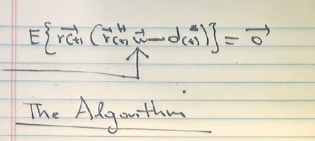 E{r⃗(t) (r⃗(t)ᴴ w⃗ - d(t)*)} = 0⃗
The Algorithm